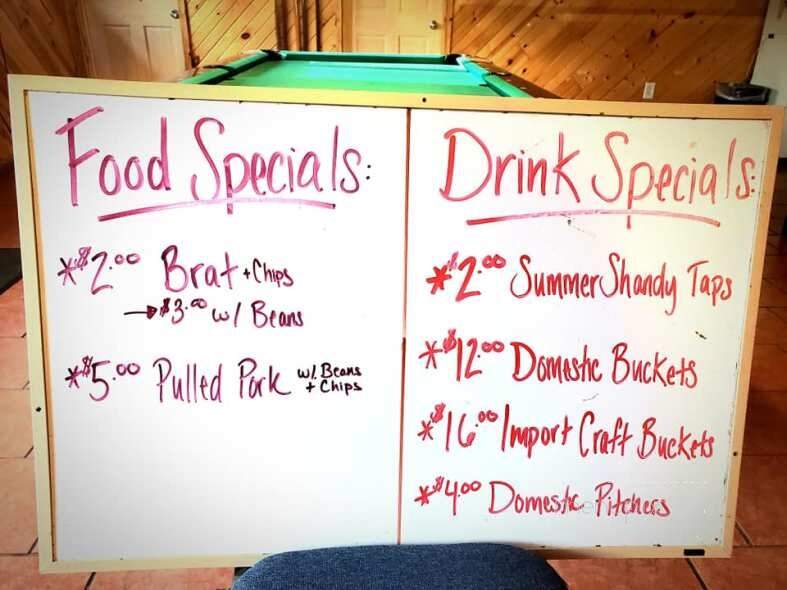 Food Specials:
*$2.00 Brat + Chips
→ $3.00 w/ Beans
*$5.00 Pulled Pork w/ Beans
+ Chips
Drink Specials:
*$2.00 Summer Shandy Taps
*$12.00 Domestic Buckets
*$16.00 Import Craft Buckets
*$4.00 Domestic Pitchers